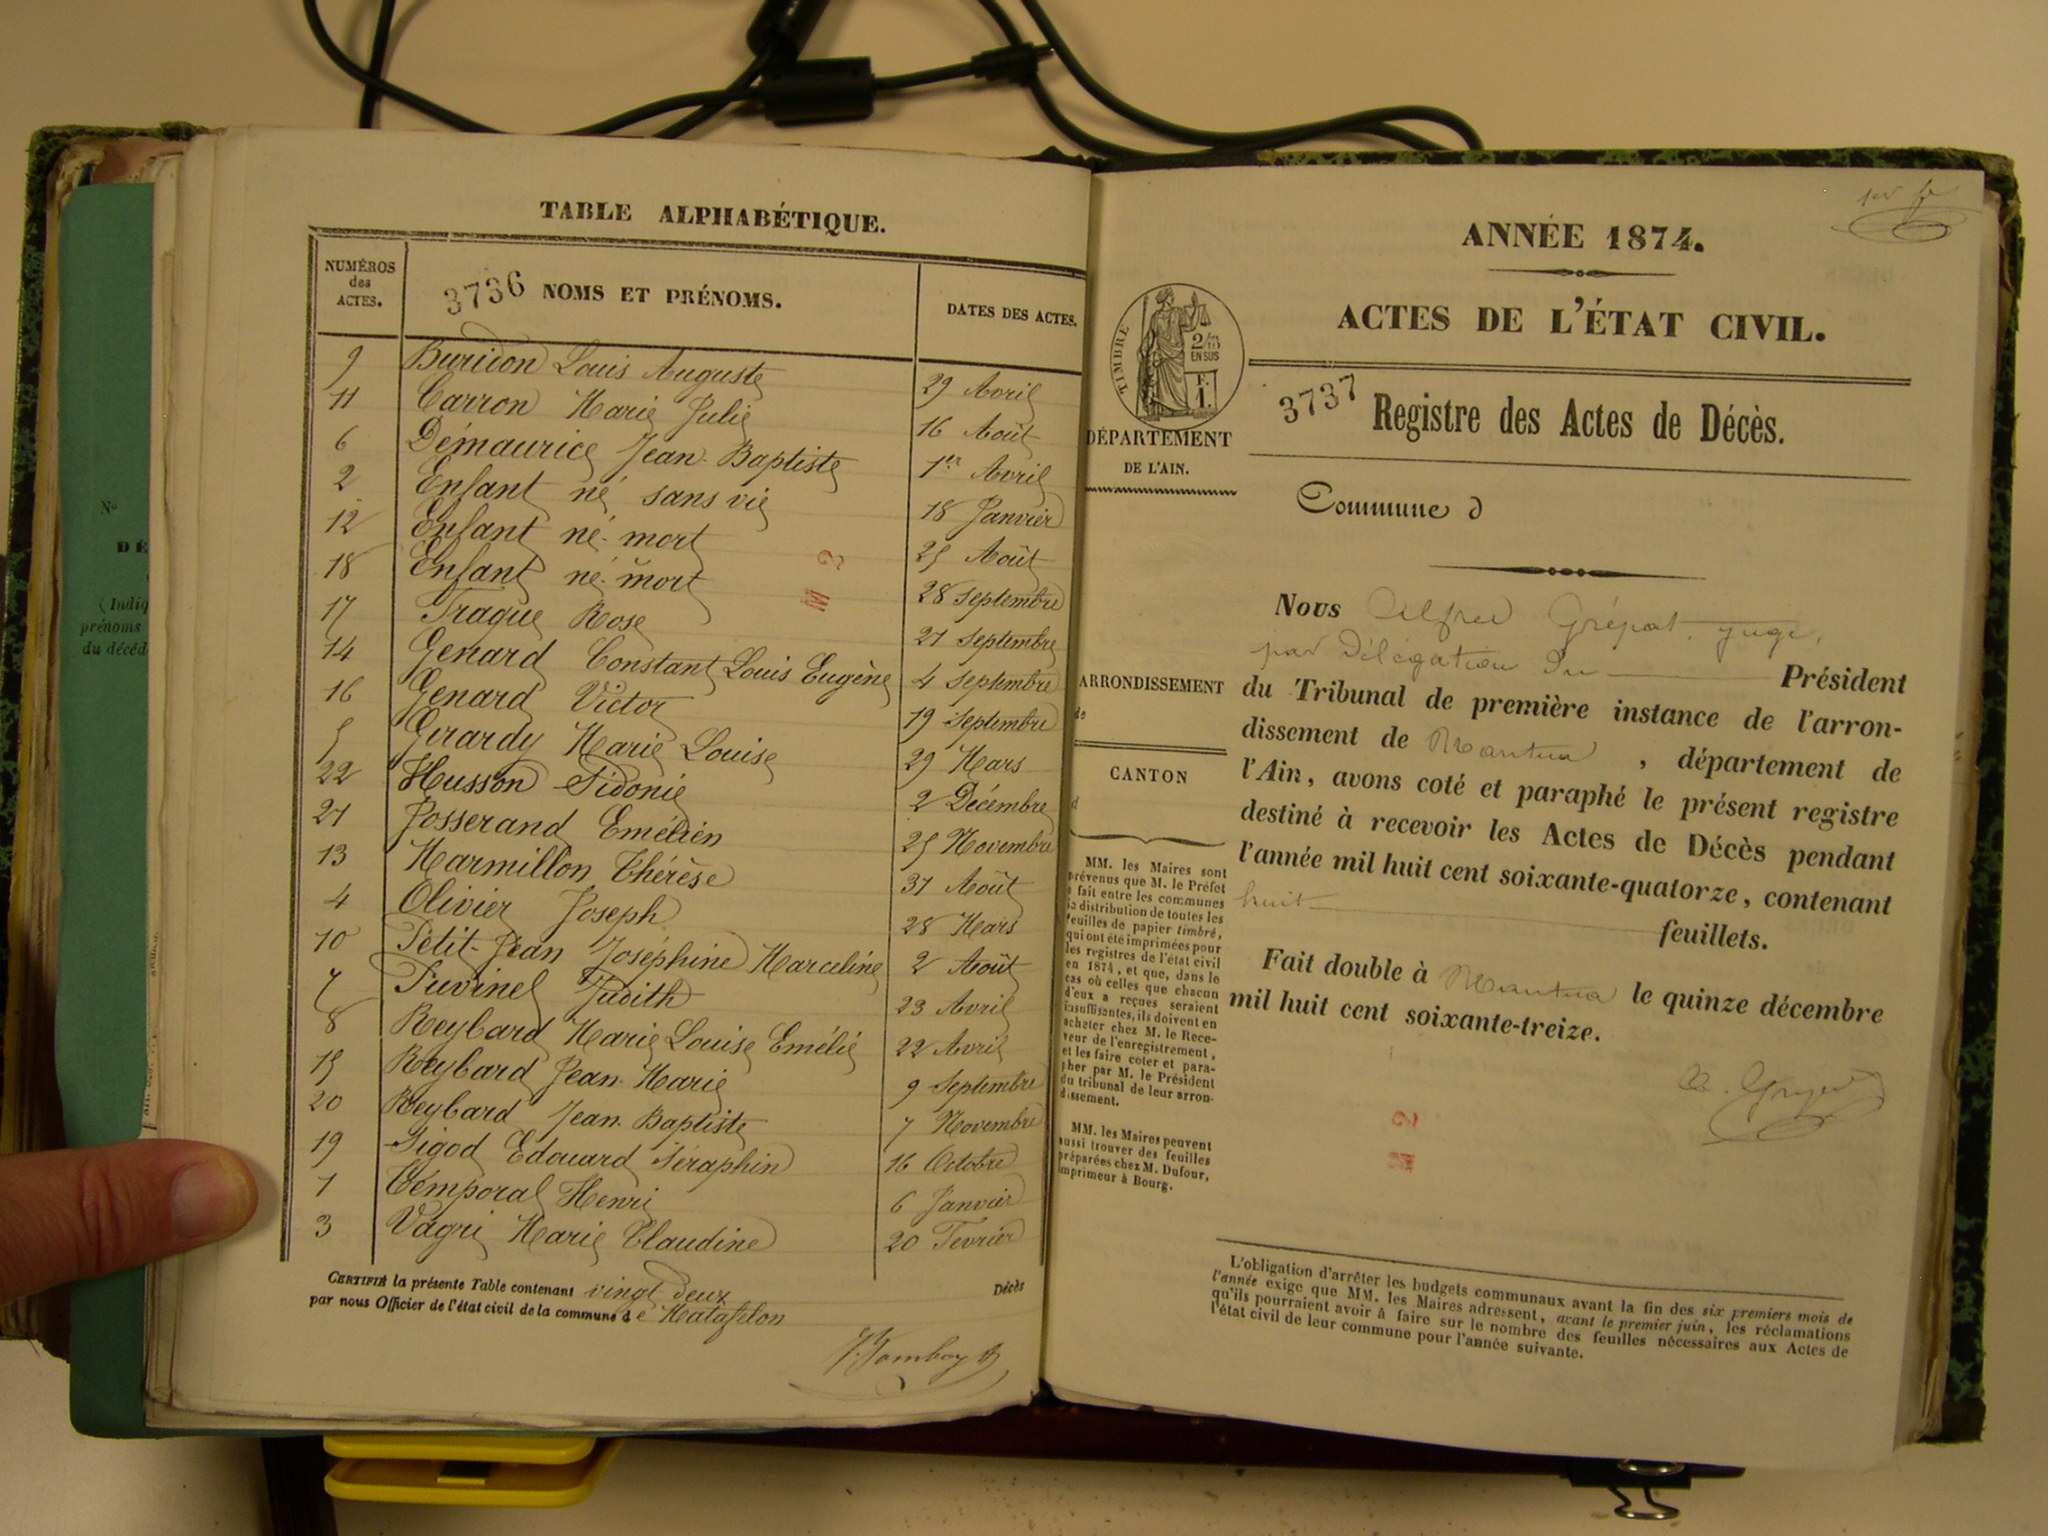 TABLE ALPHABÉTIQUE.
NUMÉROS des ACTES.
3736 NOMS ET PRÉNOMS.
DATES DES ACTES.
9 Buridon Louis Auguste 29 Avril
11 Carron Marie Julie 16 Août
6 Démaurice Jean-Baptiste 1er Avril
2 Enfant né sans vie 18 Janvier
12 Enfant né-mort 25 Août
18 Enfant né-mort 28 Septembre
17 Frague Rose 21 Septembre
14 Genard Constant Louis Eugène 4 Septembre
16 Genard Victor 19 Septembre
5 Girardy Marie Louise 29 Mars
22 Husson Sidonie 2 Décembre
21 Josserand Emélien 25 Novembre
13 Marmillon Thérèse 31 Août
4 Olivier Joseph 28 Mars
10 Petit-Jean Joséphine Marceline 2 Août
7 Puvinel Judith 23 Avril
8 Reybard Marie Louise Emélie 22 Avril
15 Reybard Jean-Marie 9 Septembre
20 Reybard Jean-Baptiste 7 Novembre
19 Sigod Edouard Séraphin 16 Octobre
1 Témporal Henri 6 Janvier
3 Vagri Marie Claudine 20 Fevrier
CERTIFIÉ la présente Table contenant vingt deux Décès
par nous Officier de l'état civil de la commune de Matafelon
N°
DÉ
(Indiq
prénoms
du décéd
ANNÉE 1874.
ACTES DE L'ÉTAT CIVIL.
TIMBRE
2/10
EN SUS
F.
1.
3737 Registre des Actes de Décès.
DÉPARTEMENT
DE L'AIN.
Commune d
Nous Alfred Grépat, juge,
par Délégation du Président
du Tribunal de première instance de l'arron-
dissement de Mantua, département de
l'Ain, avons coté et paraphé le présent registre
destiné à recevoir les Actes de Décès pendant
l'année mil huit cent soixante-quatorze, contenant
huit feuillets.
Fait double à Mantua le quinze décembre
mil huit cent soixante-treize.
ARRONDISSEMENT
de
CANTON
d
MM. les Maires sont
prévenus que M. le Préfet
a fait entre les communes
la distribution de toutes les
feuilles de papier timbré,
qui ont été imprimées pour
les registres de l'état civil
en 1874, et que, dans le
cas où celles que chacun
d'eux a reçues seraient
insuffisantes, ils doivent en
acheter chez M. le Rece-
veur de l'enregistrement,
et les faire coter et para-
pher par M. le Président
du tribunal de leur arron-
dissement.
MM. les Maires peuvent
aussi trouver des feuilles
préparées chez M. Dufour,
imprimeur à Bourg.
L'obligation d'arrêter les budgets communaux avant la fin des six premiers mois de
l'année exige que MM. les Maires adressent, avant le premier juin, les réclamations
qu'ils pourraient avoir à faire sur le nombre des feuilles nécessaires aux Actes de
l'état civil de leur commune pour l'année suivante.